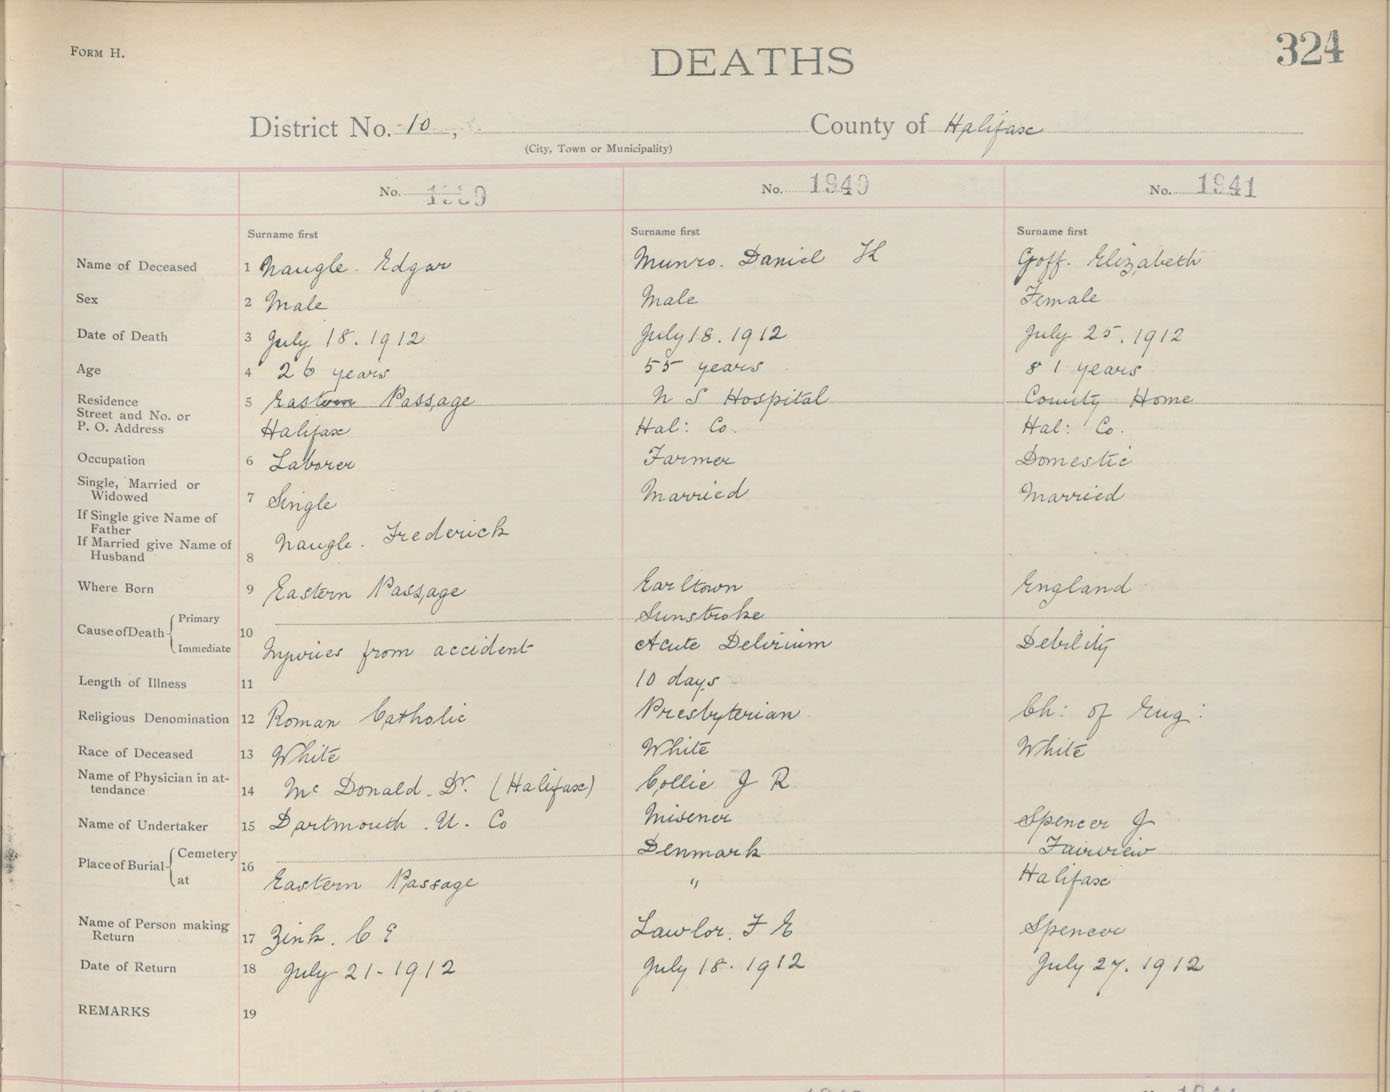 FORM H.
DEATHS
324
District No. 10, County of Halifax
(City, Town or Municipality)
No. 1939 No. 1940 No. 1941
Surname first Surname first Surname first
Name of Deceased 1 Naugle. Edgar Munro. Daniel H Goff. Elizabeth
Sex 2 Male Male Female
Date of Death 3 July 18. 1912 July 18. 1912 July 25. 1912
Age 4 26 years 55 years 81 years
Residence 5 Eastern Passage N S Hospital County Home
Street and No. or
P. O. Address Halifax Hal: Co. Hal: Co.
Occupation 6 Laborer Farmer Domestic
Single, Married or
Widowed 7 Single Married Married
If Single give Name of
Father
If Married give Name of
Husband 8 Naugle. Frederick
Where Born 9 Eastern Passage Earltown England
Cause of Death Primary 10 Sunstroke
Immediate Injuries from accident Acute Delirium Debility
Length of Illness 11 10 days
Religious Denomination 12 Roman Catholic Presbyterian Ch: of Eng:
Race of Deceased 13 White White White
Name of Physician in at-
tendance 14 Mc Donald. Dr. (Halifax) Collie J R
Name of Undertaker 15 Dartmouth. U. Co Misener Spencer J
Place of Burial Cemetery 16 Denmark Fairview
at Eastern Passage " Halifax
Name of Person making
Return 17 Zink. C E Lawlor. F E Spencer
Date of Return 18 July 21-1912 July 18. 1912 July 27. 1912
REMARKS 19